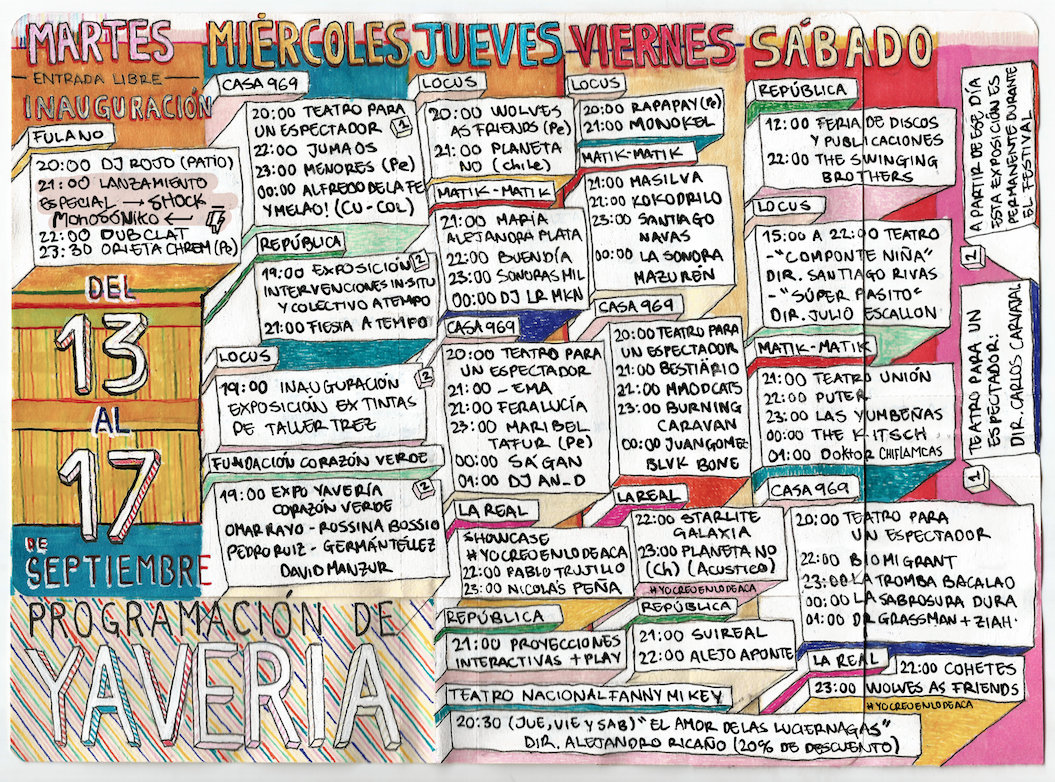 MARTES
ENTRADA LIBRE
INAUGURACIÓN
FULANO
20:00 DJ ROJO (PATIO)
21:00 LANZAMIENTO
ESPECIAL → SHOCK
MonoSóNiko ←
22:00 DUB CLAT
23:30 ORIETA CHREM (Pe)
DEL
13
AL
17
DE
SEPTIEMBRE
PROGRAMACIÓN DE
YAVERIA
MIÉRCOLES
CASA 969
20:00 TEATRO PARA
UN ESPECTADOR 1
22:00 JUMA OS
23:00 MENORES (Pe)
00:00 ALFREDO DE LA FE
Y MELAO! (CU-COL)
REPÚBLICA
19:00 EXPOSICIÓN 2
INTERVENCIONES IN-SITU
Y COLECTIVO ATEMPO
21:00 FIESTA ATEMPO
LOCUS
19:00 INAUGURACIÓN 2
EXPOSICIÓN EX TINTAS
DE TALLER TREZ
FUNDACIÓN CORAZÓN VERDE
19:00 EXPO YAVERÍA 2
CORAZÓN VERDE
OMAR RAYO - ROSSINA BOSSIO
PEDRO RUIZ - GERMÁN TÉLLEZ
DAVID MANZUR
JUEVES
LOCUS
20:00 WOLVES
AS FRIENDS (Pe)
21:00 PLANETA
NO (chile)
MATIK-MATIK
21:00 MARÍA
ALEJANDRA PLATA
22:00 BUENDÍA
23:00 SONORAS MIL
00:00 DJ LR MKN
CASA 969
20:00 TEATRO PARA
UN ESPECTADOR
21:00 - EMA
22:00 FERALUCÍA
23:00 MARIBEL
TAFUR (Pe)
00:00 SÁGAN
01:00 DJ AN_D
LA REAL
SHOWCASE
#YOCREOENLODEACA
22:00 PABLO TRUJILLO
23:00 NICOLÁS PEÑA
REPÚBLICA
21:00 PROYECCIONES
INTERACTIVAS + PLAY
VIERNES
LOCUS
20:00 RAPAPAY (Pe)
21:00 MONOKEL
MATIK-MATIK
21:00 MASILVA
22:00 KOKODRILO
23:00 SANTIAGO
NAVAS
00:00 LA SONORA
MAZUREN
CASA 969
20:00 TEATRO PARA
UN ESPECTADOR
21:00 BESTIÄRIO
22:00 MMODCATS
23:00 BURNING
CARAVAN
00:00 JUAN GOMEZ
BLVK BONE
LA REAL
22:00 STARLITE
GALAXIA
23:00 PLANETA NO
(Ch) (ACUSTICO)
#YOCREOENLODEACA
REPÚBLICA
21:00 SUIREAL
22:00 ALEJO APONTE
SÁBADO
REPÚBLICA
12:00 FERIA DE DISCOS
Y PUBLICACIONES
22:00 THE SWINGING
BROTHERS
LOCUS
15:00 A 22:00 TEATRO
-"COMPONTE NIÑA"
DIR. SANTIAGO RIVAS
-"SÚPER PASITO"
DIR. JULIO ESCALLON
MATIK-MATIK
21:00 TEATRO UNIÓN
22:00 PUTER
23:00 LAS YUMBEÑAS
00:00 THE K-ITSCH
01:00 DoKtoR CHIFLAMCAS
CASA 969
20:00 TEATRO PARA
UN ESPECTADOR
22:00 BIOMIGRANT
23:00 LA TROMBA BACALAO
00:00 LA SABROSURA DURA
01:00 DR GRASSMAN + ZIAH.
LA REAL
22:00 COHETES
23:00 WOWES AS FRIENDS
#YOCREOENLODEACA
TEATRO NACIONAL FANNY MIKEY
20:30 (JUE, VIE Y SAB) "EL AMOR DE LAS LUCIERNAGAS"
DIR. ALEJANDRO RICAÑO (20% DE DESCUENTO)
2
A PARTIR DE ESE DÍA
ESTA EXPOSICIÓN ES
PERMANENTE DURANTE
EL FESTIVAL
1
TEATRO PARA UN
ESPECTADOR:
DIR. CARLOS CARVAJAL